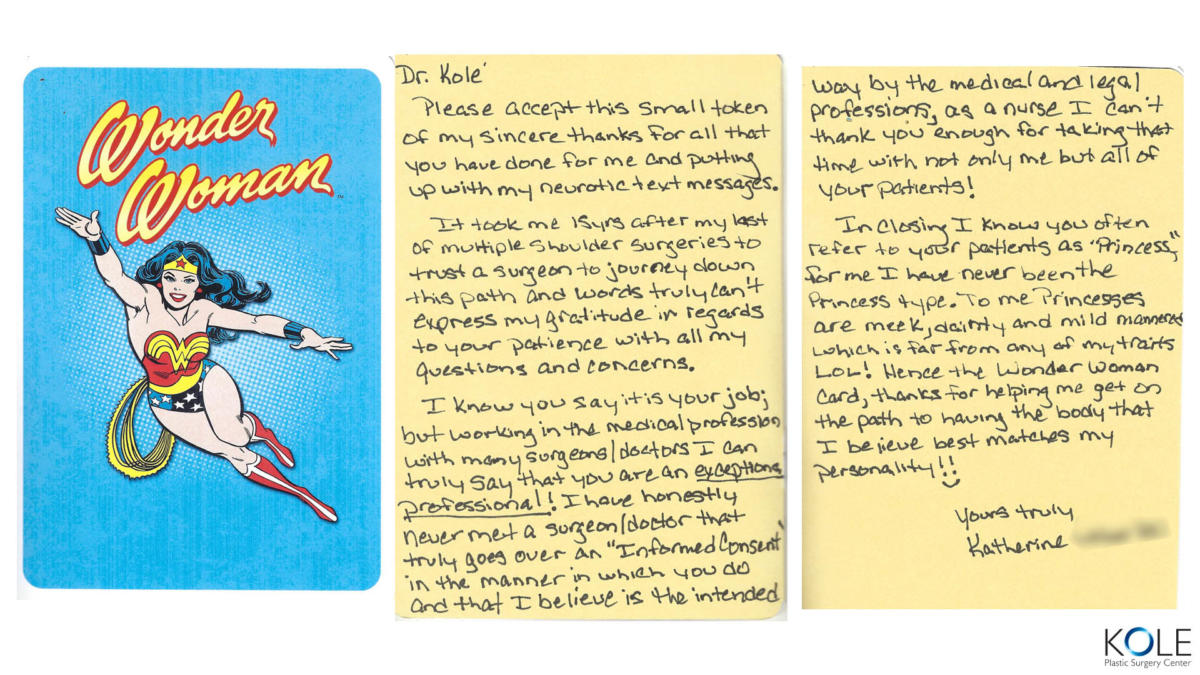 Wonder
Woman
TM
Dr. Kole'
Please accept this small token
of my sincere thanks for all that
you have done for me and putting
up with my neurotic text messages.
It took me 15yrs after my last
of multiple shoulder surgeries to
trust a surgeon to journey down
this path and words truly can't
express my gratitude in regards
to your patience with all my
questions and concerns.
I know you say it is your job;
but working in the medical profession
with many surgeons/doctors I can
truly say that you are an exceptional
professional! I have honestly
never met a surgeon/doctor that
truly goes over an "Informed Consent"
in the manner in which you do
and that I believe is the intended
way by the medical and legal
professions, as a nurse I can't
thank you enough for taking that
time with not only me but all of
your patients!
In closing I know you often
refer to your patients as "Princess,"
for me I have never been the
Princess type. To me Princesses
are meek, dainty and mild mannered
which is far from any of my traits
LOL! Hence the Wonder Woman
card, thanks for helping me get on
the path to having the body that
I believe best matches my
personality!!
Yours truly
Katherine
KOLE
Plastic Surgery Center